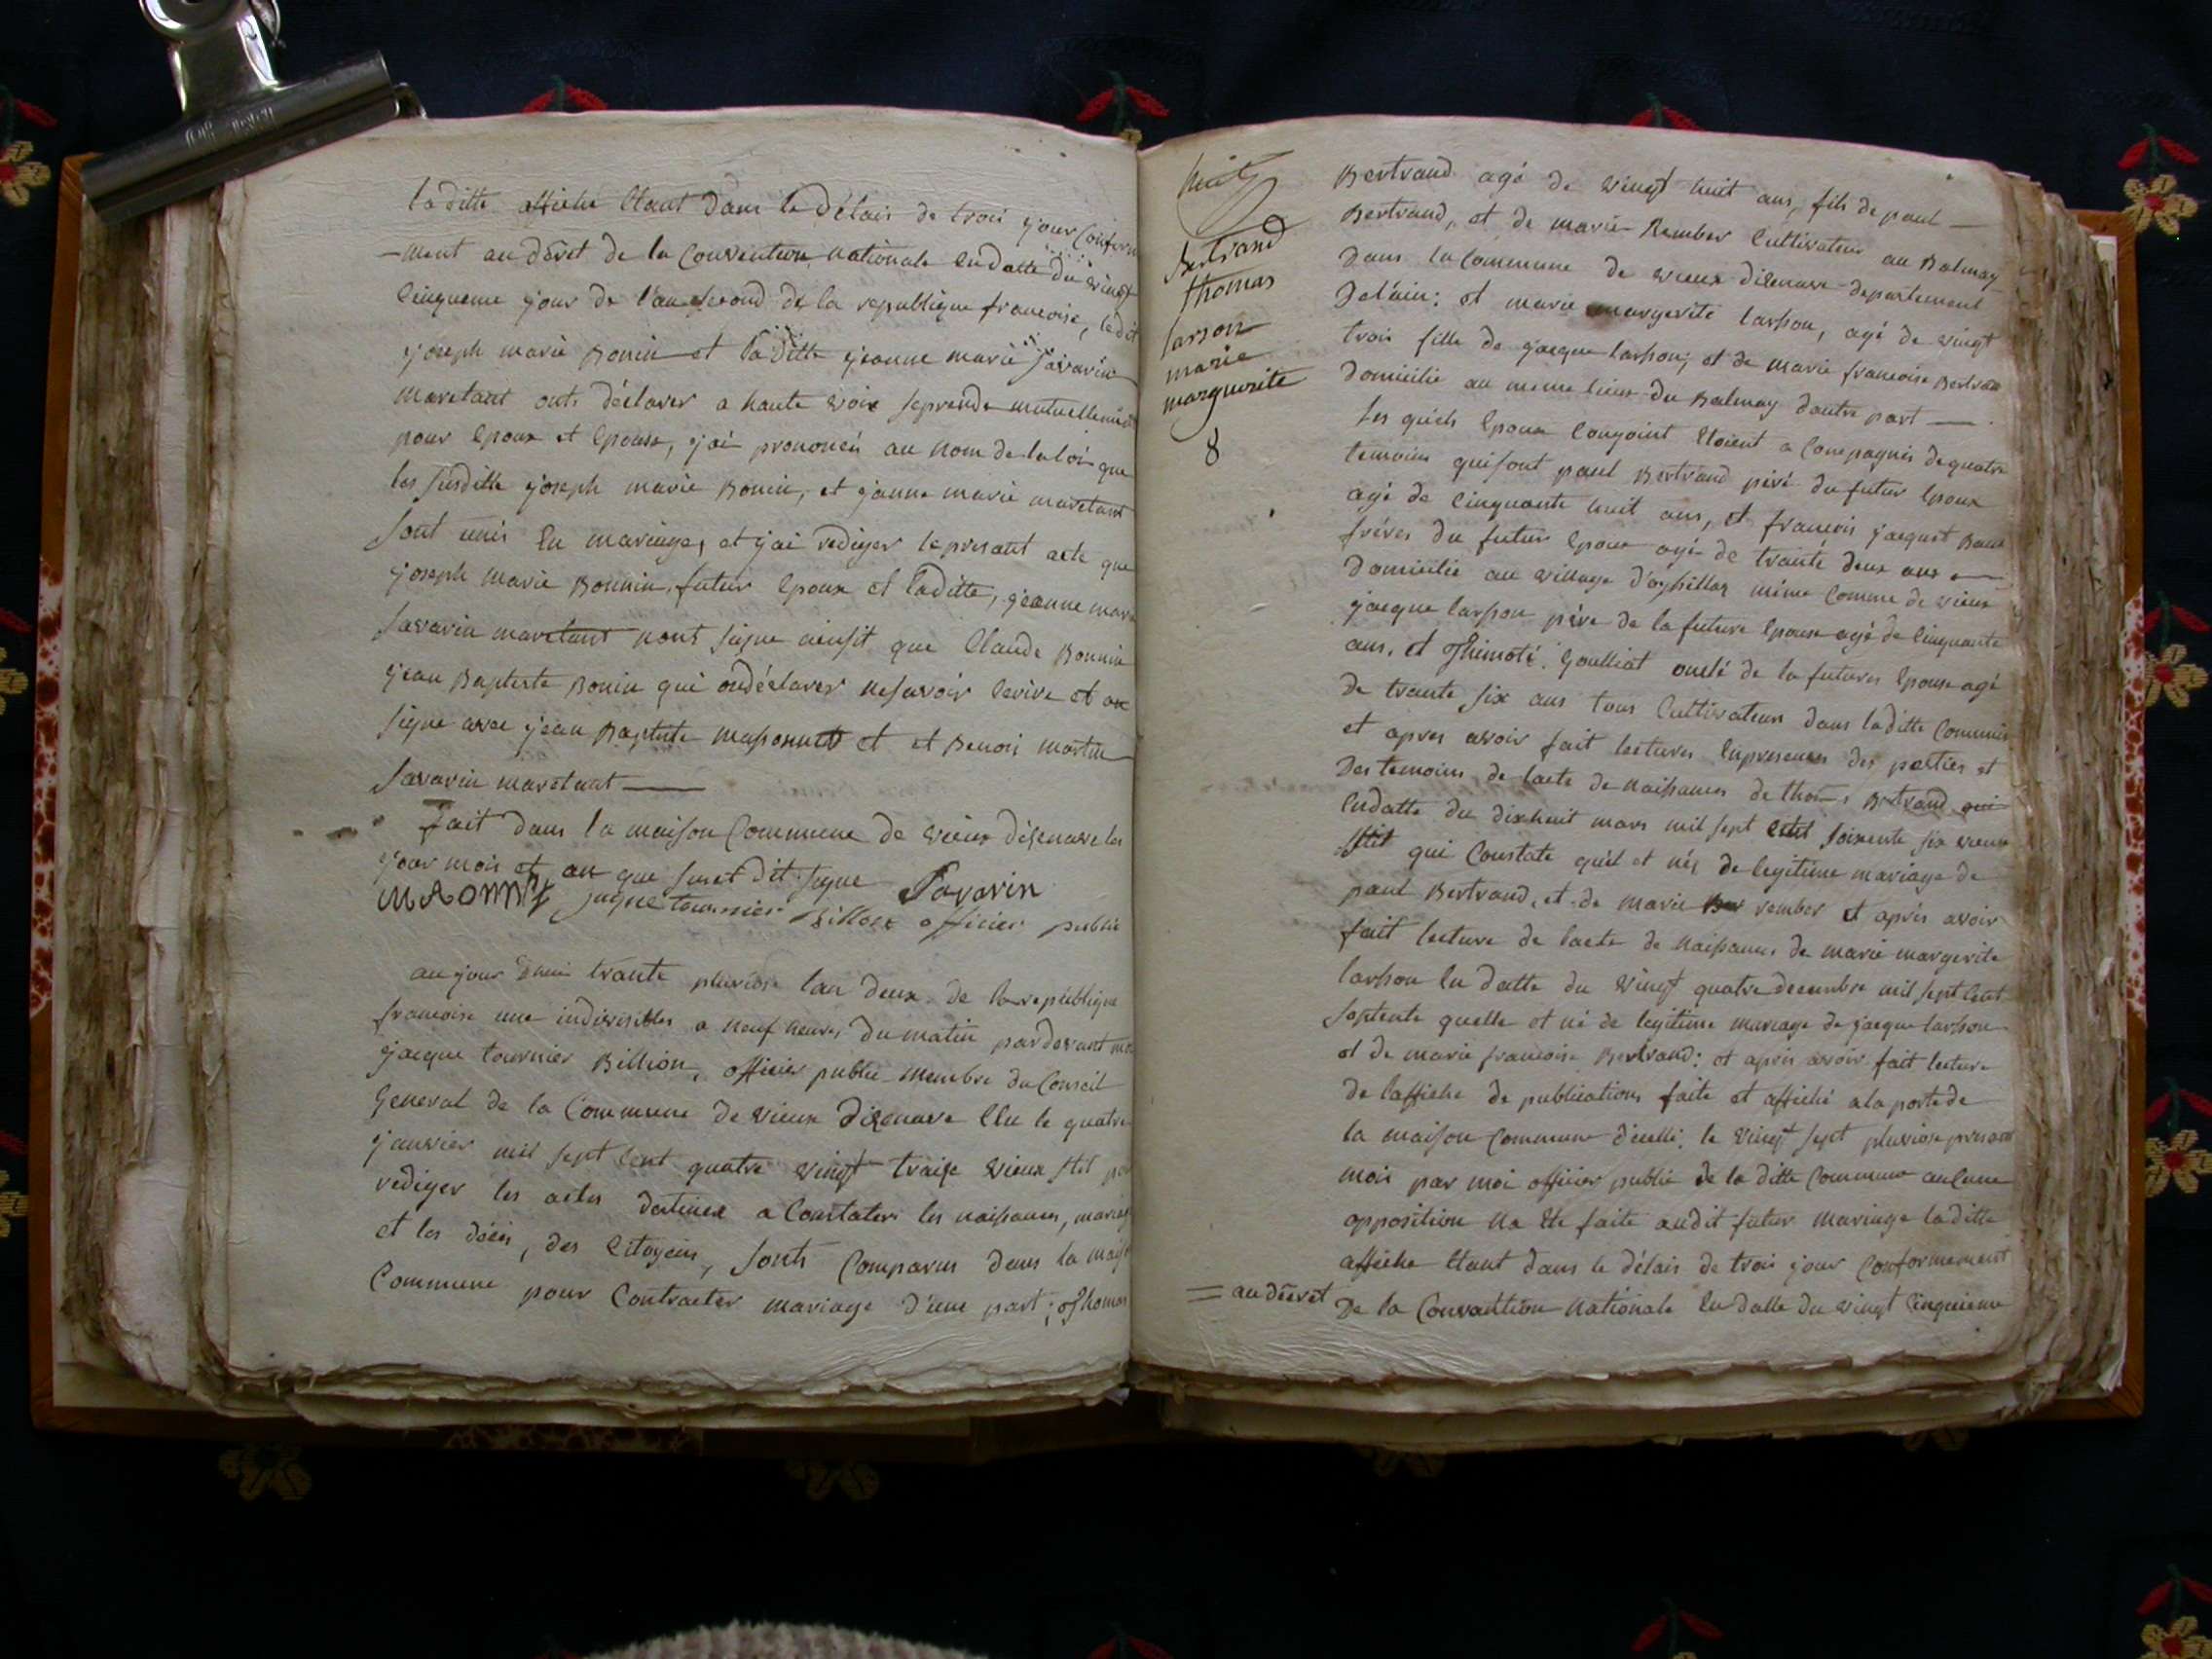 la ditte affiche Etant Dans le Délais de trois jour Conform
-ment au déret de la Convention nationale En datte du vingt
Cinqueme jour de l'an second de la republique francoise, ledit
joseph marie Bonin et la Ditte jeanne marie Savarin
maretant onts déclarer a haute voix se prendre mutuellement
pour Epoux et Epouse, j'ai prononcés au nom de la loi que
les susditte joseph marie Bonin, et jeanne marie maretant
sont unis En mariage, et j'ai rediger le presant acte que
joseph marie Bonnin futur Epoux et la ditte, jeanne marie
Savarin maretant nont signe ainsit que Claude Bonnin
jean Baptiste Bonin qui on déclarer ne savoir Ecrire et on
signe avec jean Baptiste massonnet et et Benoit martin
Savarin maretant
fait Dans la maison Commune de vieux disenave les
jour mois et an que susest dit signe Savarin
jaque tournier Billion officier public
aujour d'hui trante pluviose l'an deux de la republique
francoise une indivisibles a neuf heures Du matin pardevant moi
jacque tournier Billion, officier public membre du Conseil
General de la Commune de vieux disenave Elu le quatre
janvier mil sept Cent quatre vingt traise vieux stil pour
rediger les actes destinez a Constater les naissances, mariage
et les décés, des Citoyens, sonts Comparus dans la maison
Commune pour Contracter mariage d'une part; thomas
huit
Bertrand
thomas
larson
marie
marguerite
8
Bertrand agé de vingt huit ans, fils de paul
Bertrand, et de marie Rember Cultivateur au Balmay
Dans la Commune de vieux disenave departement
Delain; et marie margerite larsson, agé de vingt
trois fille de jacque larsson; et de marie francoise Bertran
Domicilié au meme lieux du Balmay dautre part
les quels Epoux Conjoint Etoient a Compagnés de quatre
temoins qui sont paul Bertrand péré du futur Epoux
agé de Cinquante huit ans, et francois jacquet Bau
fréres du futur Epoux agé de trante deux ans
Domicilié au village d'aysillas méme Comme de vieux
jacque larsson pére de la future Epouse agé de Cinquante
ans, et thimoté Goulliat onclé de la futures Epouse agé
de trante six ans tous Cultivateurs dans laditte Commune
et apres avoir fait lectures En presences des parties et
Des temoins de lacte de naissances de thomas Bertrand qui
En datte du dixhuit mars mil sept Cent soixente six vieux
stil qui Constate qu'il et nés de legitime mariage de
paul Bertrand, et de marie rember et aprés avoir
fait lecture de lacte de naissances de marie margerite
larsson En datte du vingt quatre decembre mil sept Cent
septente quelle et né de legitime mariage de jacque larsson
et de marie francoise Bertrand; et aprés avoir fait lecture
de laffiche de publications faite et affiché a la porte de
la maison Commune dicelli. le vingt sept pluviose presant
mois par moi officier public de la ditte Commune aucune
opposition na Ete faite audit futur mariage laditte
affiche Etant dans le délais de trois jour Conformement
= au déret De la Convantion nationale En datte du vingt Cinquieme